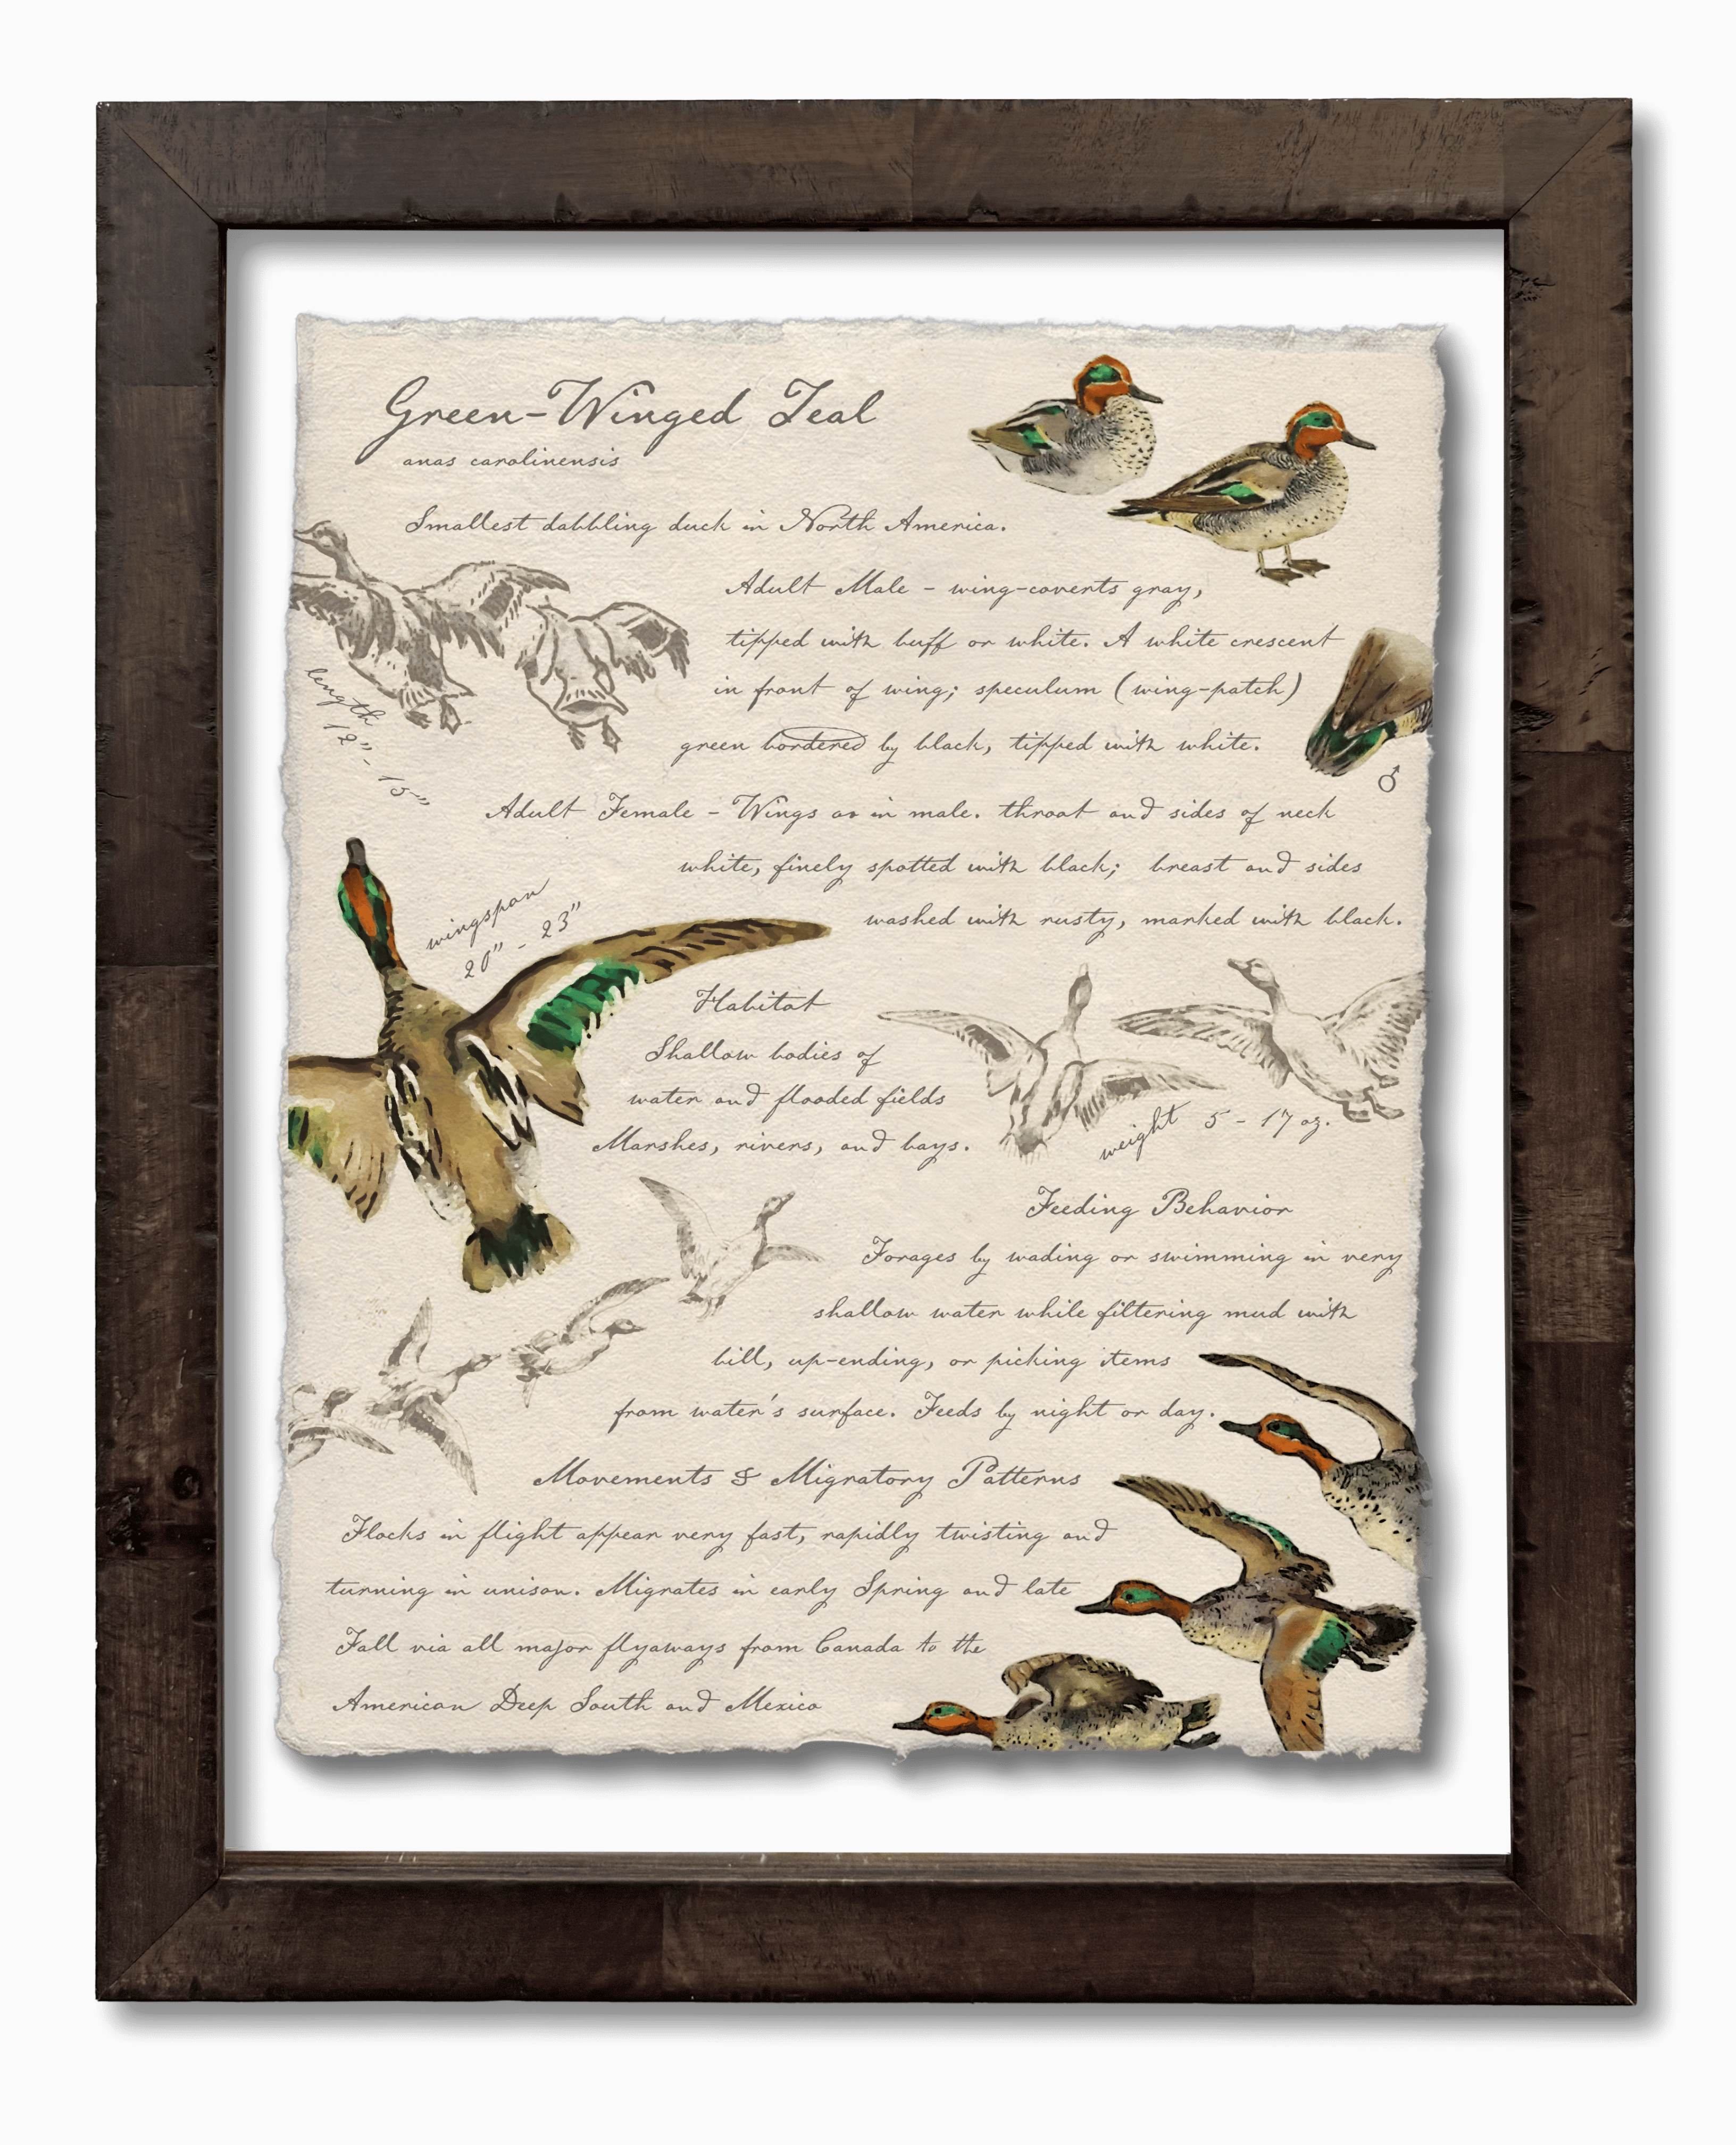 Green-Winged Teal
anas carolinensis
Smallest dabbling duck in North America.
Adult Male - wing-coverts gray,
tipped with buff or white. A white crescent
in front of wing; speculum (wing-patch)
green bordered by black, tipped with white.
length
12" - 15"
♂
Adult Female - Wings as in male. throat and sides of neck
white, finely spotted with black; breast and sides
washed with rusty, marked with black.
wingspan
20" - 23"
Habitat
Shallow bodies of
water and flooded fields
Marshes, rivers, and bays.
weight 5 - 17 oz.
Feeding Behavior
Forages by wading or swimming in very
shallow water while filtering mud with
bill, up-ending, or picking items
from water's surface. Feeds by night or day.
Movements & Migratory Patterns
Flocks in flight appear very fast, rapidly twisting and
turning in unison. Migrates in early Spring and late
Fall via all major flyaways from Canada to the
American Deep South and Mexico